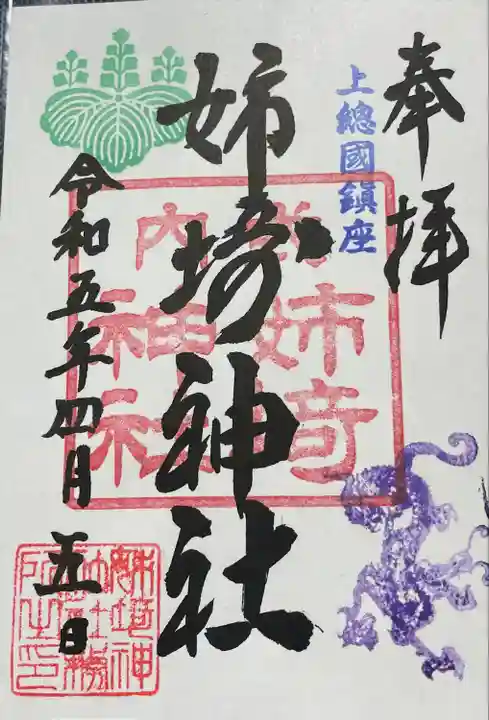 奉拝
上總國鎮座
姉埼神社
令和五年四月五日
内姉埼
神社
姉埼神
社務
所之印